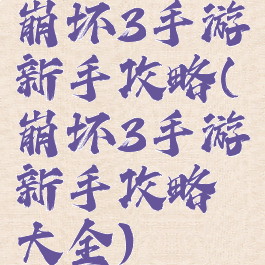 崩坏3手游
新手攻略(
崩坏3手游
新手攻略
大全)